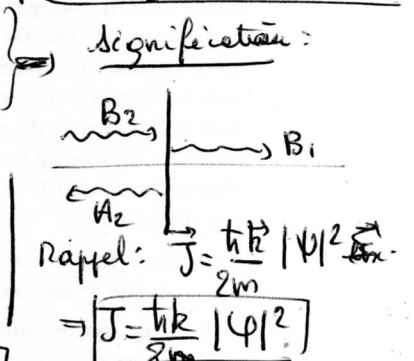 } ⇒ Signification :
B₂
B₁
A₂
Rappel : J⃗ = ħk⃗/2m |Ψ|²
⇒ J = ħk/2m |φ|²